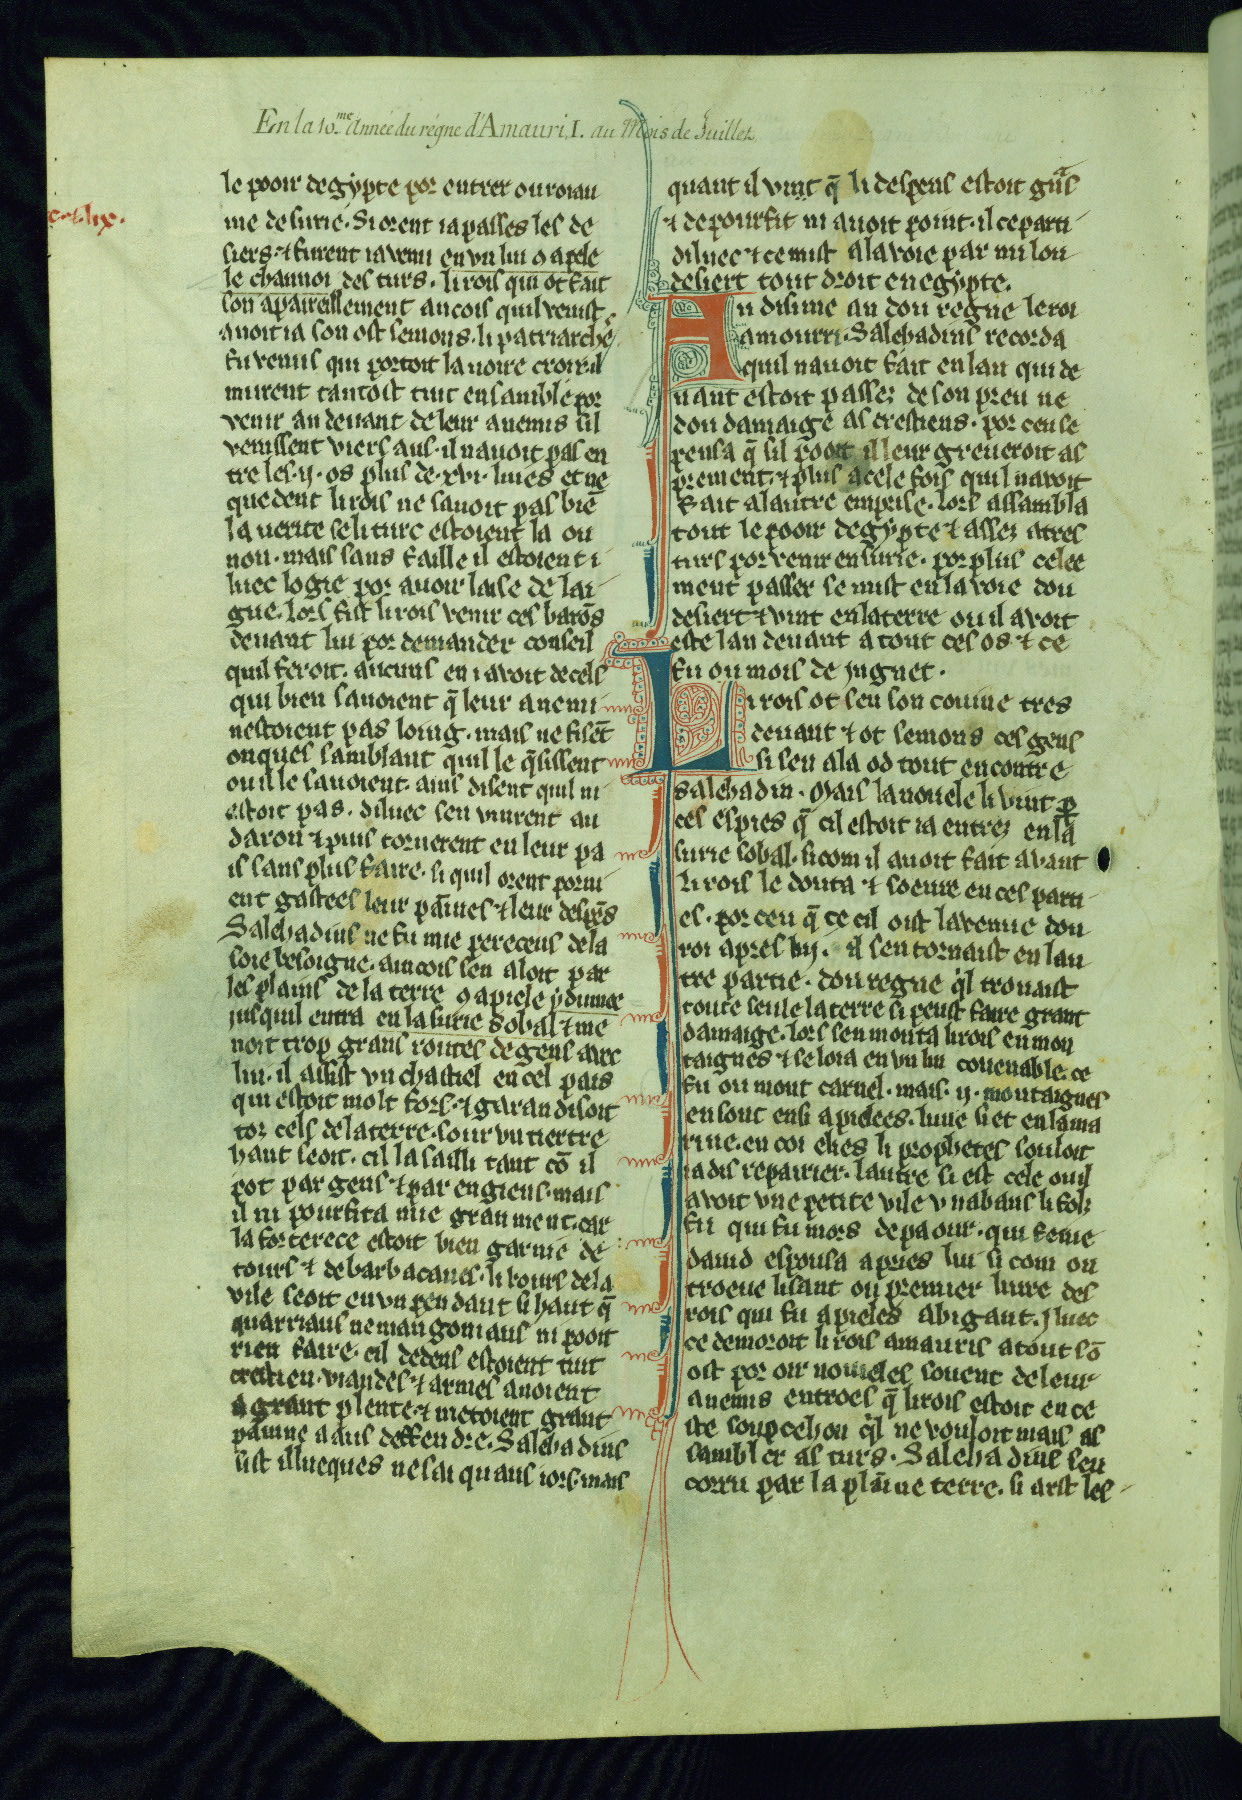 En la 10.me Année du régne d'Amauri, I. au Mois de Juillet.
le pooir degypte por entrer ou roiau
me de surie. Si orent ia passes les de
siers. ⁊ furent ia venu en vn liu ꝯ apele
le channoi des turs. li rois qui ot fait
son apareillement ancois quil venist
auoit ia son ost semons. li patriarche
fu venus qui portoit la uoire croix. il
murent tantost tuit ensamble por
venir au deuant de leur anemis sil
venissent viers aus. il nauoit pas en
tre les .ij. os plus de .xvi. liues et ne
quedent li rois ne sauoit pas biē
la uerite se li turc estoient la ou
non. mais sans faille il estoient i
luec logie por auoir laise de lai
gue. lors fist li rois venir ces barōs
deuant lui por demander conseil
quil feroit. aucuns en i avoit de cels
qui bien sauoient q̄ leur anemi
nestoient pas loing. mais ne fisēt
onques samblant quil le q̄sissent
ou il le sauoient. ains disent quil ni
estoit pas. diluec sen vinrent au
daron ⁊ puis tornerent en leur pa
is sans plus faire. si quil orent porni
ent gastees leur paines ⁊ leur despēs
Salehadins ne fu mie pereceus de la
soie besoigne. aincois sen aloit par
les plains de la terre ꝯ apiele ydumee
jusquil entra en la surie sobal ⁊ me
noit trop grans routes de gens avec
lui. il assist vn chastiel en cel pais
qui estoit molt fors. ⁊ garandisoit
toz cels de la terre. sour vn tiertre
haut seoit. cil la sailli tant cō il
pot par gens ⁊ par engiens. mais
il ni pourfita mie granment. car
la forterece estoit bien garnie de
tours ⁊ de barbacanes. li bours de la
vile seoit en vn pendant si haut q̄
quarriaus ne mangoniaus ni pooit
rien faire. cil dedens estoient tuit
crestien. viandes ⁊ armes auoient
a grant plente. ⁊ metoient grant
painne a aus deffendre. Salehadins
sist illueques ne sai quans iors. mais
quant il vint q̄ li despens estoit grās
⁊ de pourfit ni auoit point. il ce parti
diluec ⁊ ce mist a la voie par mi lou
desiert tout droit en egypte.
An disime an dou regne le roi
amourri. Salehadins recorda
quil nauoit fait en lan qui de
uant estoit passez de son preu ne
dou damaige as crestiens. por ceu se
pensa q̄ sil pooit il leur greueroit as
prement. ⁊ plus a cele fois quil navoit
fait a lautre emprise. lors assambla
tout le pooir degypte ⁊ assez atres
turs por venir en surie. por plus celee
ment passer se mist en la voie dou
desiert ⁊ vint en la terre ou il avoit
este lan deuant a tout ces os ⁊ ce
fu ou mois de jugnet.
Li rois ot seu son couine tres
deuant ⁊ ot semons ces gens
si sen ala od tout encontre
Salehadin. Mais la nouele li vint p̱
ces espies q̄ cil estoit ia entrez en la
surie sobal. si com il auoit fait avant
li rois le douta ⁊ soeure en ces parti
es. por ceu q̄ ce cil oist la venue dou
roi apres luy. il sen tornaist en lau
tre partie. dou regne q̓l trouaist
toute seule la terre si peust faire grant
damaige. lors sen monta li rois en mon
taignes ⁊ se loia en vn liu couenable. ce
fu ou mont carmel. mais .ij. montaignes
en sont ensi apielees. lune si et en la ma
rine. en coi elies li prophetes souloit
iadis repairier. lautre si est cele ou il
avoit vne petite vile v nabaus li folz
fu qui fu mors de paour. qui feme
dauid espousa apries lui si com on
troeue lisant ou premier liure des
rois qui fu apieles abigant. Jluec
ce demoroit li rois amauris a tout sō
ost por oir nouieles souent de leur
anemis entroes q̄ li rois estoit en ce
ste soupcehon q̓l ne vouloit mais as
sambler as turs. Salehadins sen
corru par la plainne terre. si arst les